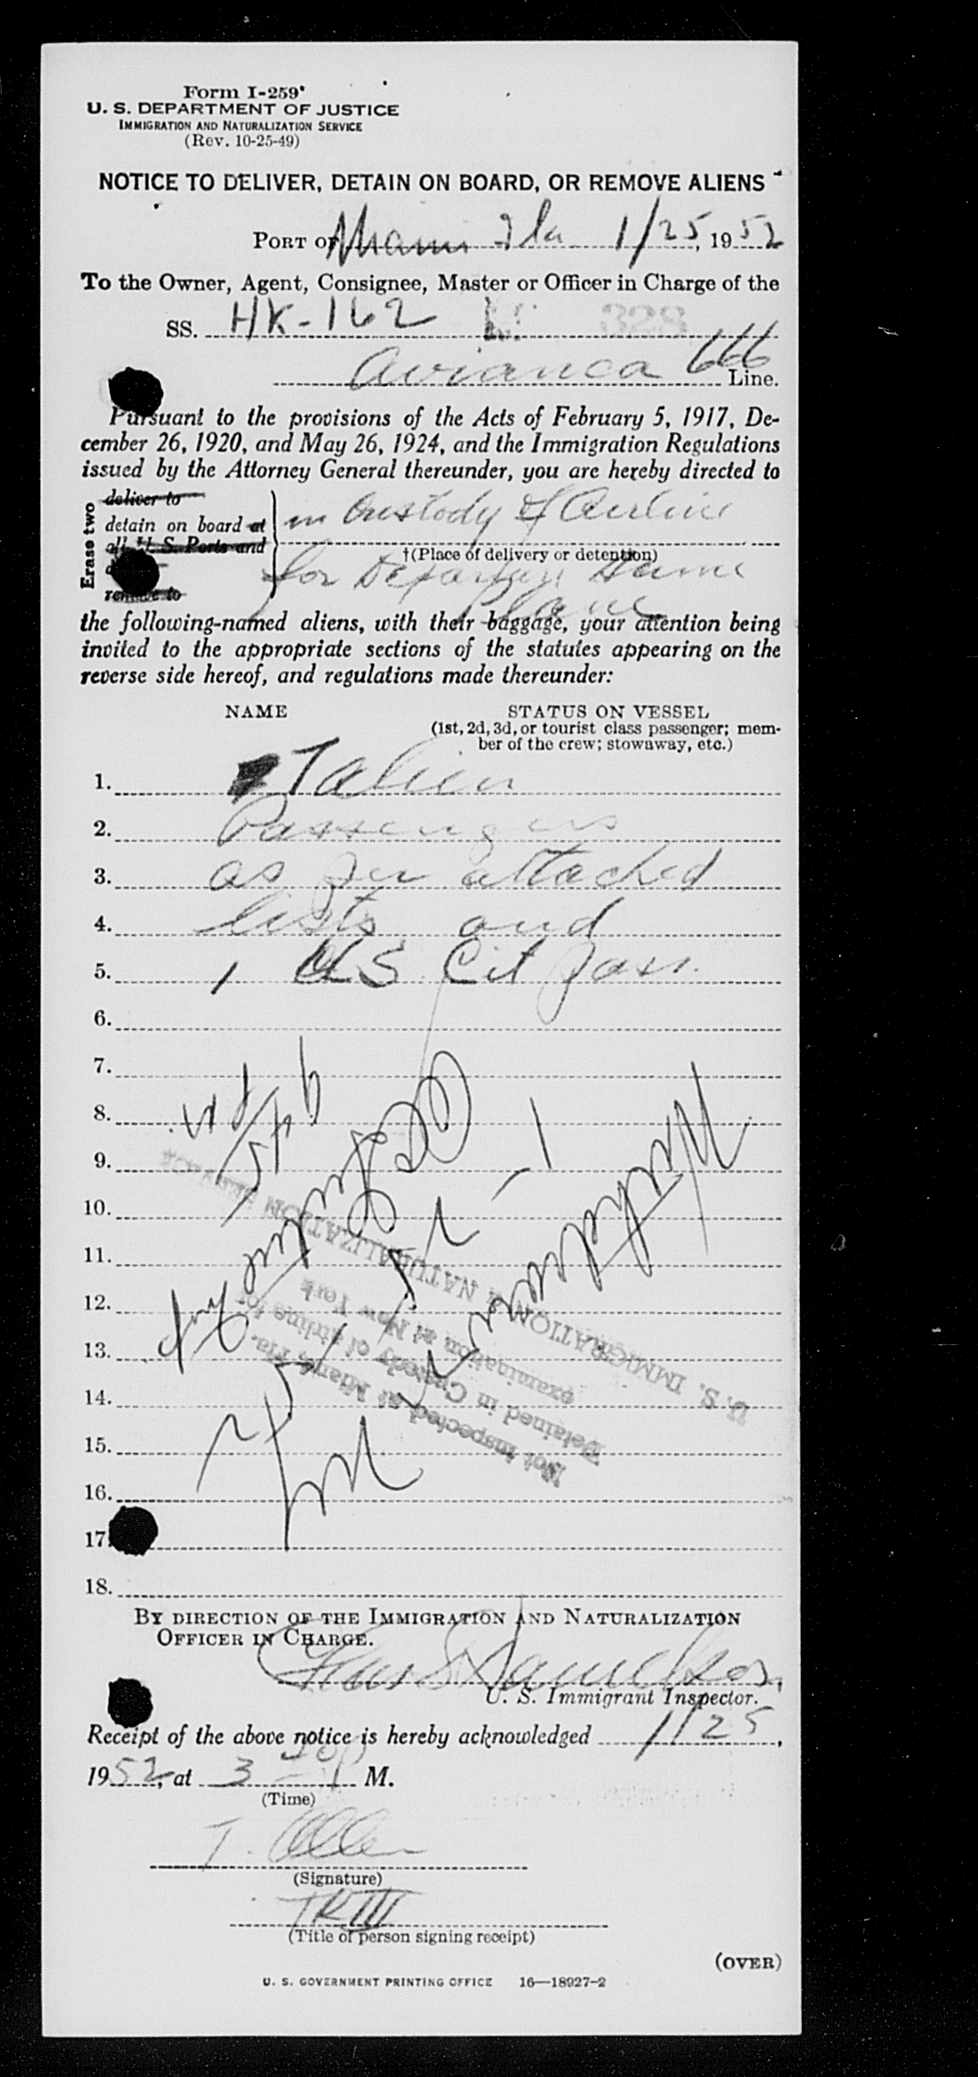 Form I-259
U. S. DEPARTMENT OF JUSTICE
IMMIGRATION AND NATURALIZATION SERVICE
(Rev. 10-25-49)
NOTICE TO DELIVER, DETAIN ON BOARD, OR REMOVE ALIENS
PORT OF Miami Fla 1/25, 1952
To the Owner, Agent, Consignee, Master or Officer in Charge of the
SS. HK-162 328
Avianca 666 Line.
Pursuant to the provisions of the Acts of February 5, 1917, De-
cember 26, 1920, and May 26, 1924, and the Immigration Regulations
issued by the Attorney General thereunder, you are hereby directed to
Erase two
deliver to
detain on board at
all U. S. Ports and
remove to
in Custody of Airline
†(Place of delivery or detention)
for Departure Same
Plane
the following-named aliens, with their baggage, your attention being
invited to the appropriate sections of the statutes appearing on the
reverse side hereof, and regulations made thereunder:
NAME STATUS ON VESSEL
(1st, 2d, 3d, or tourist class passenger; mem-
ber of the crew; stowaway, etc.)
1. 7 alien
2. Passengers
3. as per attached
4. lists and
5. 1 US Cit Pass.
6.
7.
8.
9.
10.
11.
12.
13.
14.
15.
16.
17.
18.
Not inspected at Miami, Fla.
Detained in Custody of airline for
examination at New York
U. S. IMMIGRATION & NATURALIZATION SERVICE
BY DIRECTION OF THE IMMIGRATION AND NATURALIZATION
OFFICER IN CHARGE.
U. S. Immigrant Inspector.
Receipt of the above notice is hereby acknowledged 1/25,
1952, at 3 M.
(Time)
T. Allen
(Signature)
(Title of person signing receipt)
(OVER)
U. S. GOVERNMENT PRINTING OFFICE 16—18927-2